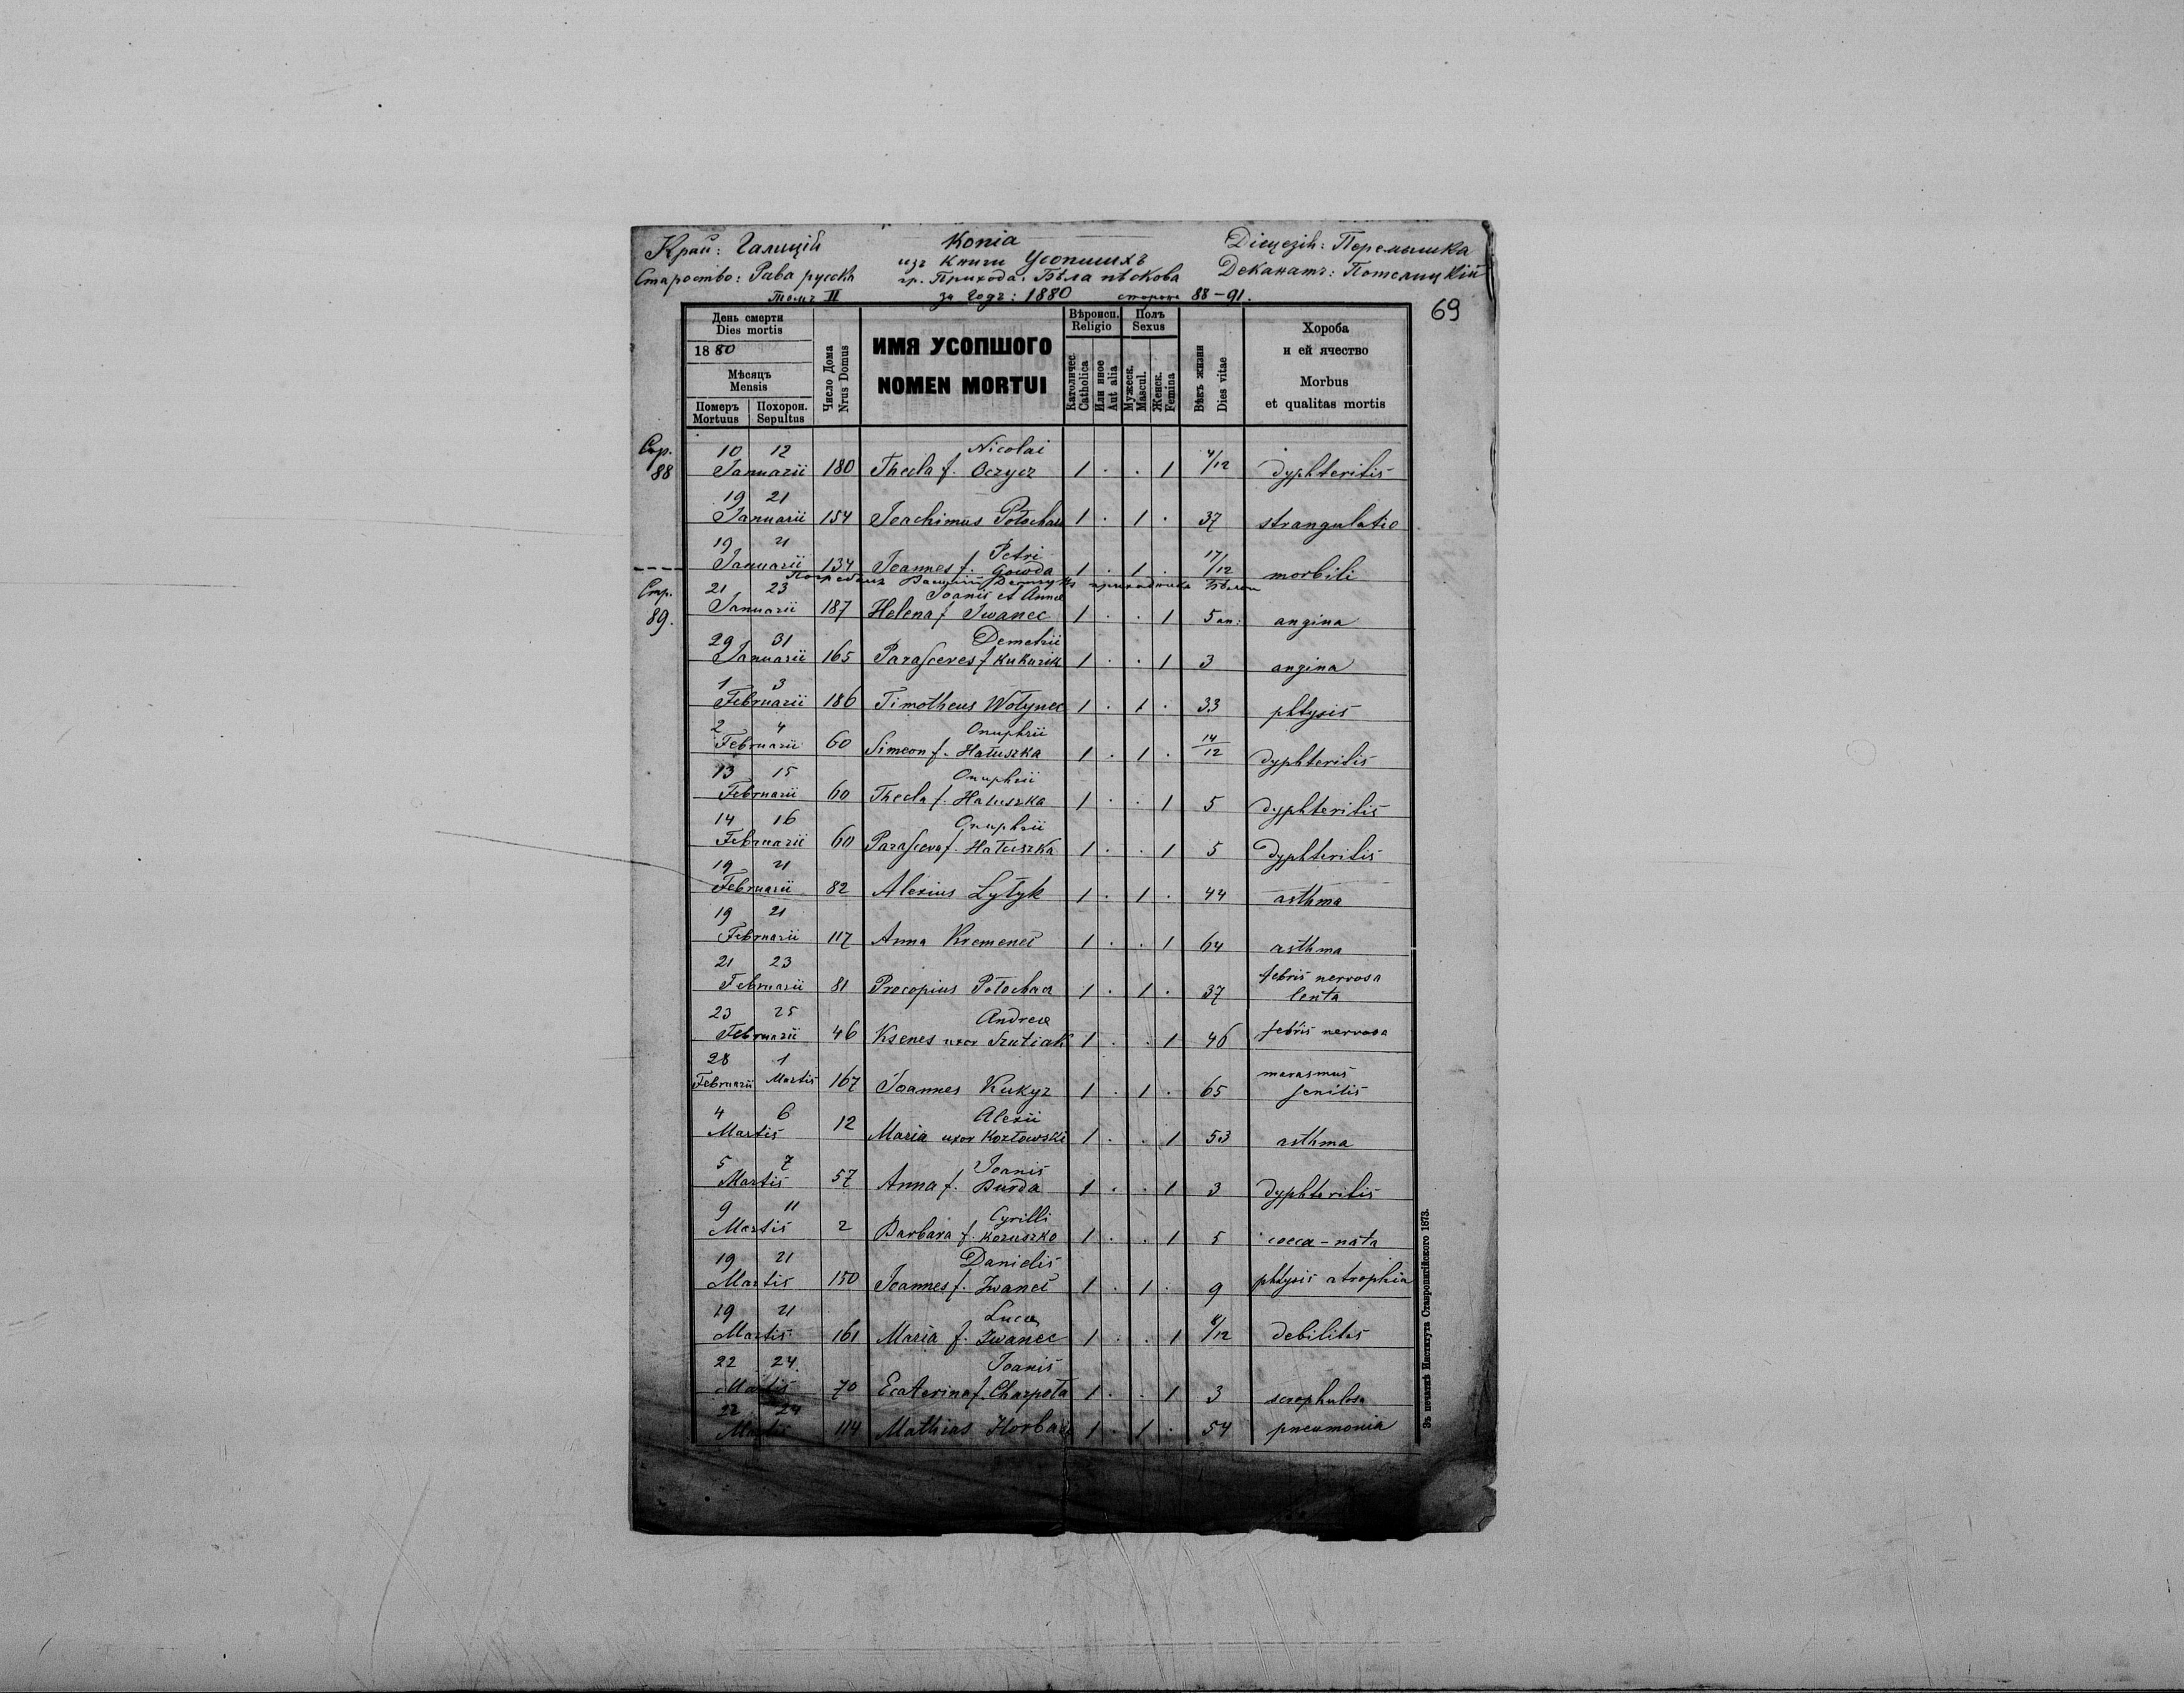 Край: Галиція
Копіа
Діецезія: Перемышка
Староство: Рава русска
изъ Книги Усопшихъ
Деканатъ: Потелицкій
гр. Прихода: Бѣла пѣскова
Томъ II
за Годъ: 1880
сторона 88-91.
69
День смерти
Dies mortis
1880
Мѣсяцъ
Mensis
Померъ Похорон.
Mortuus Sepultus
Число Дома
Nrus Domus
ИМЯ УСОПШОГО
NOMEN MORTUI
Вѣроисп.
Religio
Католичес
Catholica
Или иное
Aut alia
Полъ
Sexus
Мужеск.
Mascul.
Женск.
Femina
Вѣкъ жизни
Dies vitae
Хороба
и ей ячество
Morbus
et qualitas mortis
Стр. 88
10 12 Nicolai
Januarii 180 Thecla f. Oczycz 1 . . 1 4/12 dyphteritis
19 21
Januarii 154 Joachimus Potochac 1 . 1 . 37 strangulatio
19 21 Petri
Januarii 134 Joannes f. Gowda 1 . 1 . 17/12 morbili
Стр. 89.
21 23 Joanis et Annae
Januarii 187 Helena f Iwanec 1 . . 1 5 an: angina
29 31 Demetrii
Januarii 165 Parasceves f Kukurik 1 . . 1 3 angina
1 3
Februarii 186 Timotheus Wołynec 1 . 1 . 33 phtysis
2 4 Onuphrii
Februarii 60 Simeon f. Hałuszka 1 . 1 . 14/12 dyphteritis
13 15 Onuphrii
Februarii 60 Thecla f. Hałuszka 1 . . 1 5 dyphteritis
14 16 Onuphrii
Februarii 60 Parasceva f. Hałuszka 1 . . 1 5 dyphteritis
19 21
Februarii 82 Alexius Łytyk 1 . 1 . 44 asthma
19 21
Februarii 117 Anna Kremeneć 1 . . 1 64 asthma
21 23 febris nervosa
Februarii 81 Procopius Potochac 1 . 1 . 37 lenta
23 25 Andreæ
Februarii 46 Ksenes uxor Szutiak 1 . . 1 46 febris nervosa
28 1 marasmus
Februarii Martis 167 Joannes Kukyz 1 . 1 . 65 senilis
4 6 Alexii
Martis 12 Maria uxor Kozłowski 1 . . 1 53 asthma
5 7 Joanis
Martis 57 Anna f. Burda 1 . . 1 3 dyphteritis
9 11 Cyrilli
Martis 2 Barbara f. Kozuszko 1 . . 1 5 coeca-nata
19 21 Danielis
Martis 150 Joannes f. Iwaneć 1 . 1 . 9 phtysis atrophia
19 21 Lucæ
Martis 161 Maria f. Iwanec 1 . . 1 8/12 debilitas
22 24. Joanis
Martis 70 Ecaterina f. Charpota 1 . . 1 3 scrophulosa
22 24
Martis 114 Mathias Horbacz 1 . 1 . 54 pneumonia
Зъ печатнѣ Института Ставропигійского 1873.